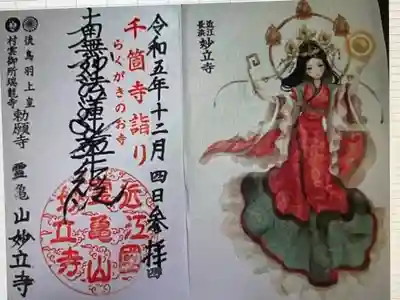 近江
長浜 妙立寺
令和五年十二月四日参拝
千箇寺詣り
らくがきのお寺
南無妙法蓮華経
近江國
霊亀山
妙立寺
後鳥羽上皇
村雲御所瑞龍寺
勅願寺
霊亀山妙立寺